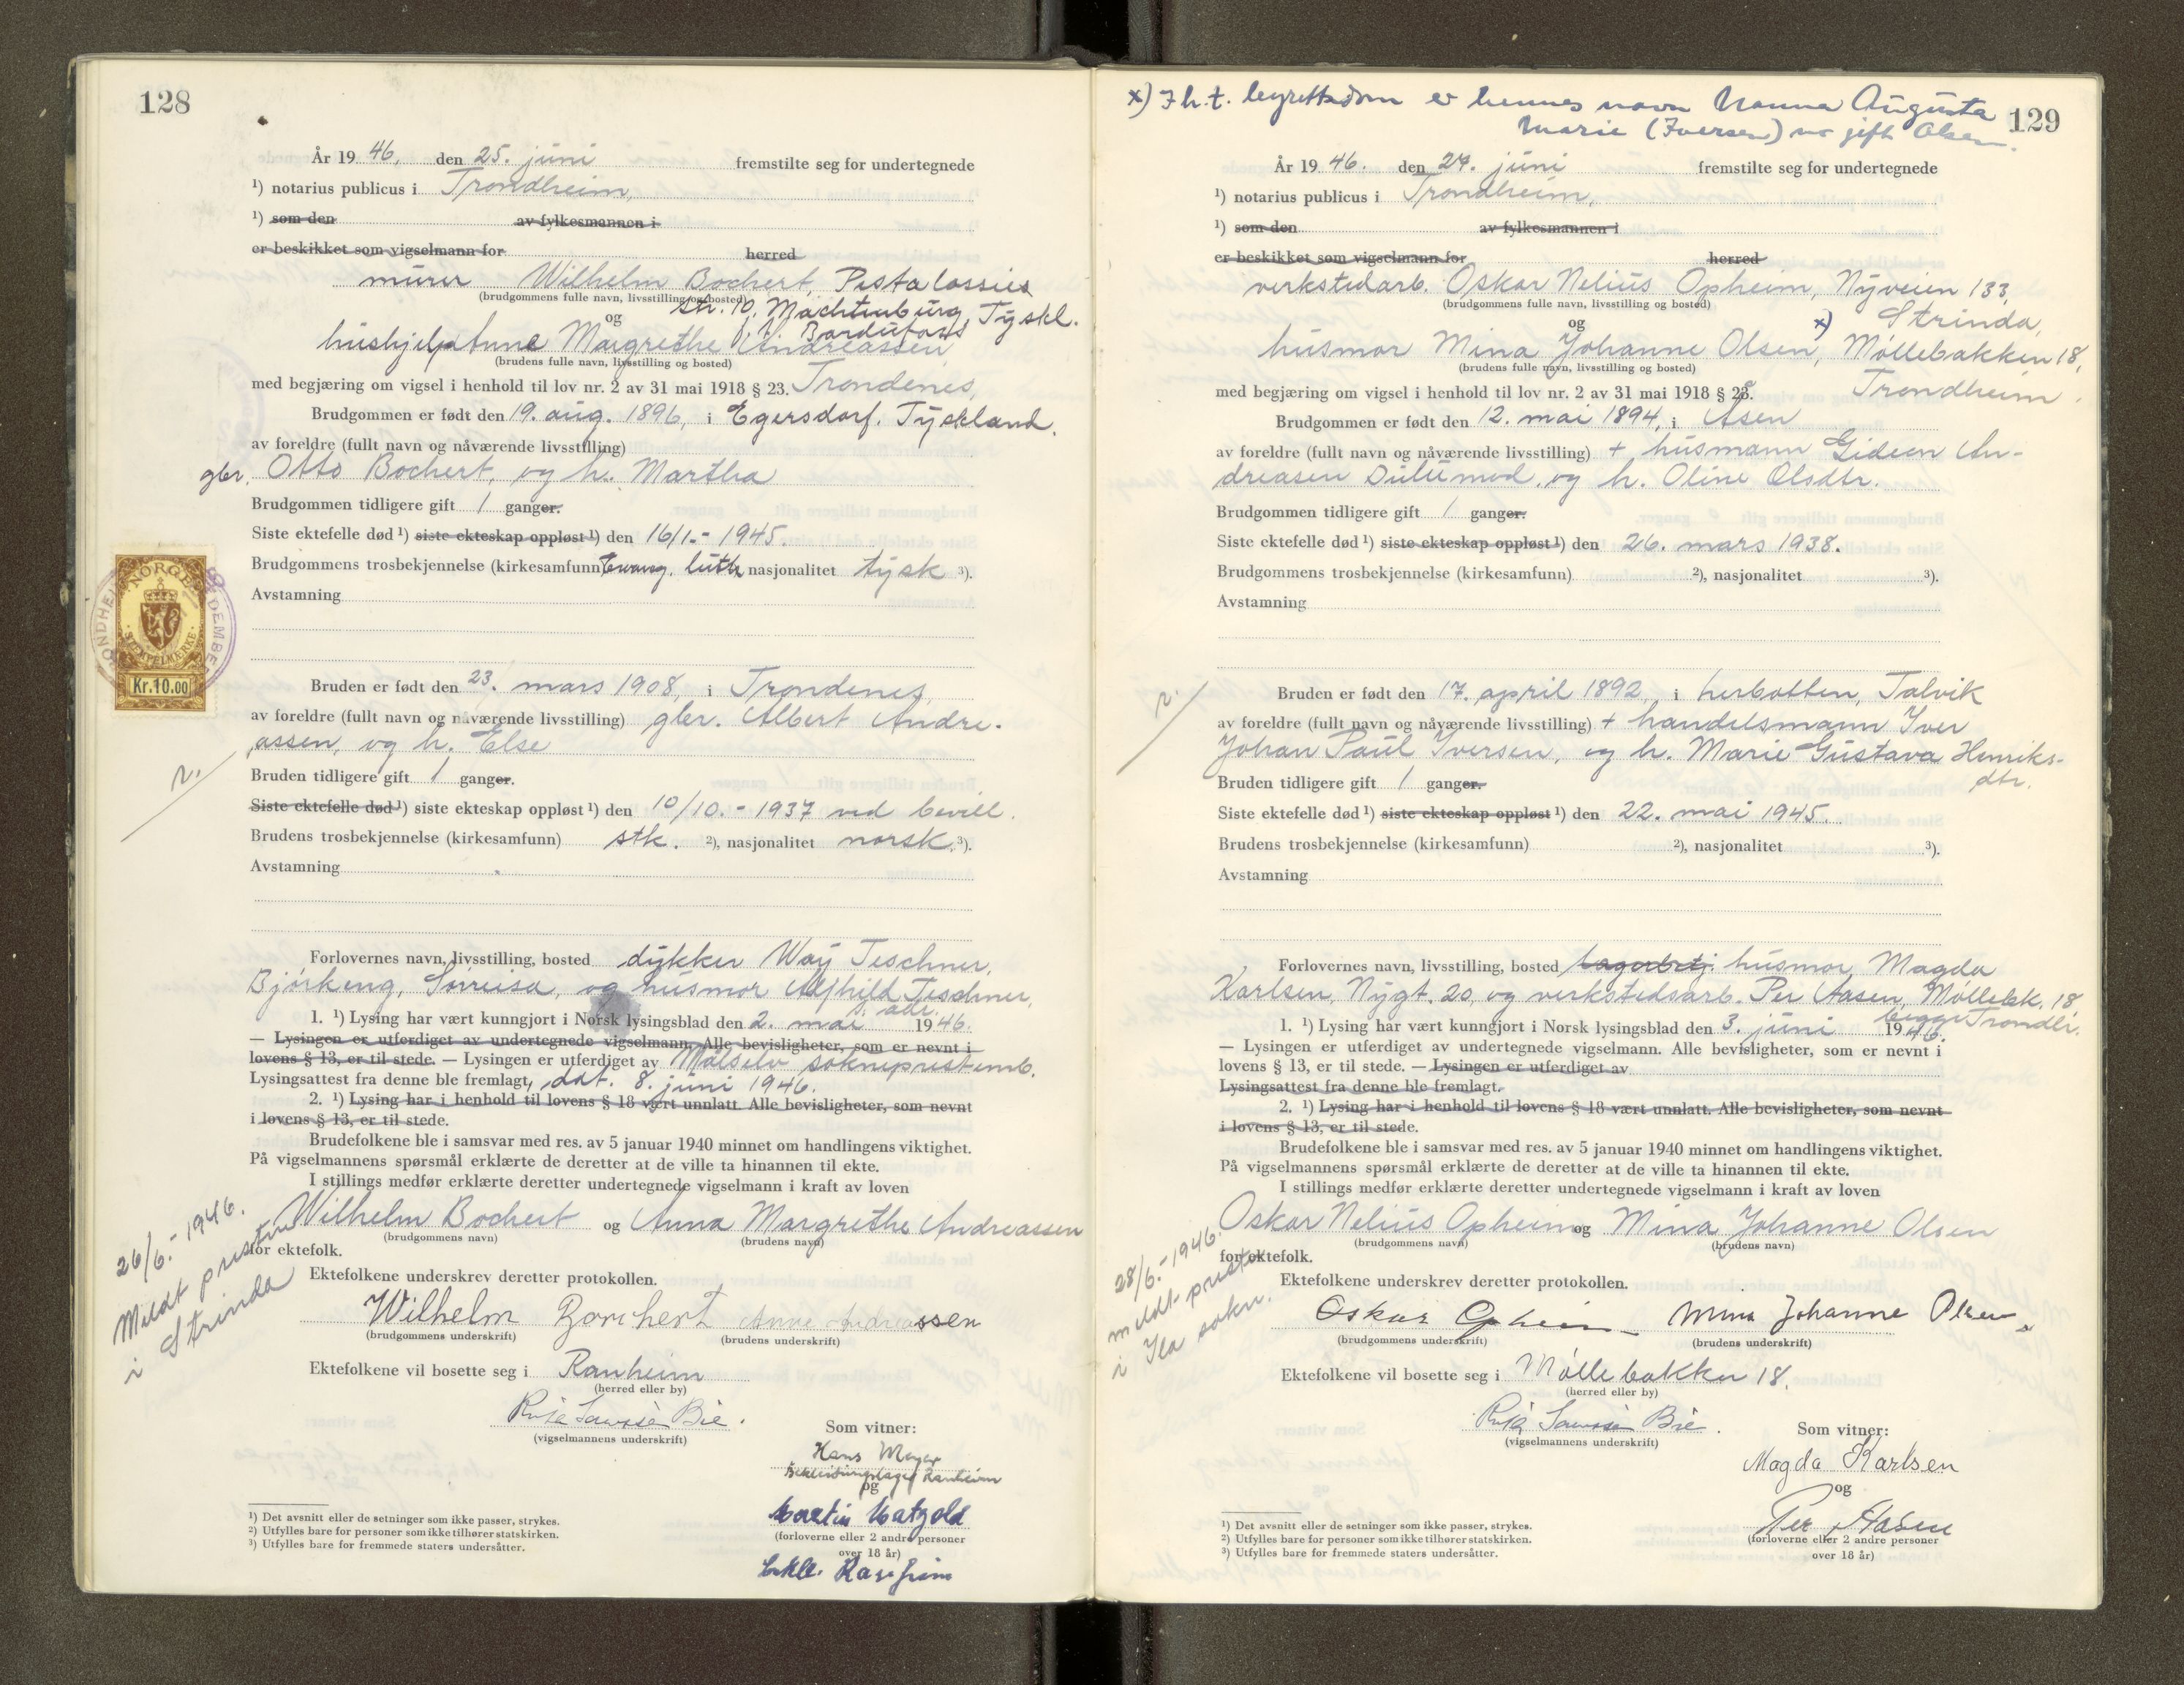 128
År 19 46, den 25. juni fremstilte seg for undertegnede
¹) notarius publicus i Trondheim,
¹) som den av fylkesmannen i
er beskikket som vigselmann for herred
murer Wilhelm Bochert, Pestalossies
(brudgommens fulle navn, livsstilling og bosted)
str. 10, Machtenburg, Tyskl.
og
hushjelp Anne Margrethe Andreassen
p.t. Bardufoss
(brudens fulle navn, livsstilling og bosted)
med begjæring om vigsel i henhold til lov nr. 2 av 31 mai 1918 § 23. Trondenes,
Brudgommen er født den 19. aug. 1896, i Egersdorf. Tyckland.
av foreldre (fullt navn og nåværende livsstilling)
gbr. Otto Bochert, og h. Martha
Brudgommen tidligere gift 1 ganger.
Siste ektefelle død ¹) siste ekteskap oppløst ¹) den 16/1.- 1945.
Brudgommens trosbekjennelse (kirkesamfunn) Evang. luth. nasjonalitet tysk ³).
Avstamning
NORGE
STEMPELMERKE
Kr.10.00
Bruden er født den 23. mars 1908, i Trondenes,
av foreldre (fullt navn og nåværende livsstilling) gbr. Albert Andre-
assen, og h. Else
Bruden tidligere gift 1 ganger.
Siste ektefelle død ¹) siste ekteskap oppløst ¹) den 10/10.- 1937 ved bevill.
Brudens trosbekjennelse (kirkesamfunn) stk. ²), nasjonalitet norsk. ³).
Avstamning
Forlovernes navn, livsstilling, bosted dykker Way Teschner,
Bjørkeng, Sørreisa, og husmor Alfhild Teschner,
s. adr.
1. ¹) Lysing har vært kunngjort i Norsk lysingsblad den 2. mai 1946.
— Lysingen er utferdiget av undertegnede vigselmann. Alle bevisligheter, som er nevnt i
lovens § 13, er til stede. — Lysingen er utferdiget av Målselv sokneprestemb.
Lysingsattest fra denne ble fremlagt, dat. 8. juni 1946.
2. ¹) Lysing har i henhold til lovens § 18 vært unnlatt. Alle bevisligheter, som nevnt
i lovens § 13, er til stede.
Brudefolkene ble i samsvar med res. av 5 januar 1940 minnet om handlingens viktighet.
På vigselmannens spørsmål erklærte de deretter at de ville ta hinannen til ekte.
I stillings medfør erklærte deretter undertegnede vigselmann i kraft av loven
Wilhelm Bochert og Anna Margrethe Andreassen
(brudgommens navn) (brudens navn)
for ektefolk.
26/6.- 1946.
Meldt presten
i Strinda
Ektefolkene underskrev deretter protokollen.
Wilhelm Borchert Anne Andreassen
(brudgommens underskrift) (brudens underskrift)
Ektefolkene vil bosette seg i Ranheim
(herred eller by)
(vigselmannens underskrift)
Som vitner:
Hans Mayer
Ranheim
og
Martin Matzold
(forloverne eller 2 andre personer
over 18 år)
¹) Det avsnitt eller de setninger som ikke passer, strykes.
²) Utfylles bare for personer som ikke tilhører statskirken.
³) Utfylles bare for fremmede staters undersåtter.
x) I h.t. leyrettsdom er hennes navn Nanna Augusta
Marie (Iversen) no gift Olsen.
129
År 19 46. den 27. juni fremstilte seg for undertegnede
¹) notarius publicus i Trondheim,
¹) som den av fylkesmannen i
er beskikket som vigselmann for herred
verkstedarb. Oskar Nelius Opheim, Nyveien 133,
(brudgommens fulle navn, livsstilling og bosted)
Strinda,
og x)
husmor Mina Johanne Olsen, Møllebakken 18,
(brudens fulle navn, livsstilling og bosted)
med begjæring om vigsel i henhold til lov nr. 2 av 31 mai 1918 § 23. Trondheim.
Brudgommen er født den 12. mai 1894, i Åsen
av foreldre (fullt navn og nåværende livsstilling) + husmann Gideon An-
dreasen Dulumod, og h. Oline Olsdtr.
Brudgommen tidligere gift 1 ganger.
Siste ektefelle død ¹) siste ekteskap oppløst ¹) den 26. mars 1938.
Brudgommens trosbekjennelse (kirkesamfunn) ²), nasjonalitet ³).
Avstamning
Bruden er født den 17. april 1892, i Lerbotten, Talvik
av foreldre (fullt navn og nåværende livsstilling) + handelsmann Iver
Johan Paul Iversen, og h. Marie Gustava Henriks-
dtr.
Bruden tidligere gift 1 ganger.
Siste ektefelle død ¹) siste ekteskap oppløst ¹) den 22. mai 1945.
Brudens trosbekjennelse (kirkesamfunn) ²), nasjonalitet ³).
Avstamning
Forlovernes navn, livsstilling, bosted lagerbetj. husmor Magda
Karlsen, Nygt. 20, og verkstedsarb. Per Aasen, Møllebk. 18
begge Trondh.
1. ¹) Lysing har vært kunngjort i Norsk lysingsblad den 3. juni 1946.
— Lysingen er utferdiget av undertegnede vigselmann. Alle bevisligheter, som er nevnt i
lovens § 13, er til stede. — Lysingen er utferdiget av
Lysingsattest fra denne ble fremlagt.
2. ¹) Lysing har i henhold til lovens § 18 vært unnlatt. Alle bevisligheter, som nevnt
i lovens § 13, er til stede.
Brudefolkene ble i samsvar med res. av 5 januar 1940 minnet om handlingens viktighet.
På vigselmannens spørsmål erklærte de deretter at de ville ta hinannen til ekte.
I stillings medfør erklærte deretter undertegnede vigselmann i kraft av loven
Oskar Nelius Opheim og Mina Johanne Olsen
(brudgommens navn) (brudens navn)
for ektefolk.
28/6.- 1946.
meldt presten
i Ila sokn.
Ektefolkene underskrev deretter protokollen.
Oskar Opheim Mina Johanne Olsen
(brudgommens underskrift) (brudens underskrift)
Ektefolkene vil bosette seg i Møllebakken 18.
(herred eller by)
(vigselmannens underskrift)
Som vitner:
Magda Karlsen
og
Per Aasen
(forloverne eller 2 andre personer
over 18 år)
¹) Det avsnitt eller de setninger som ikke passer, strykes.
²) Utfylles bare for personer som ikke tilhører statskirken.
³) Utfylles bare for fremmede staters undersåtter.